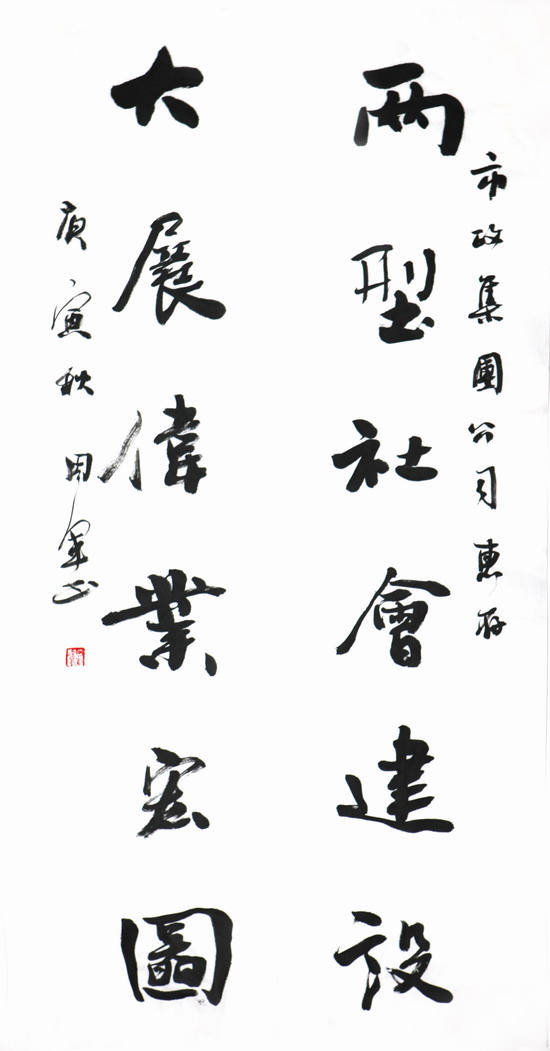 市政集團公司惠存
兩型社會建設
大展偉業宏圖
庚寅秋 周軍